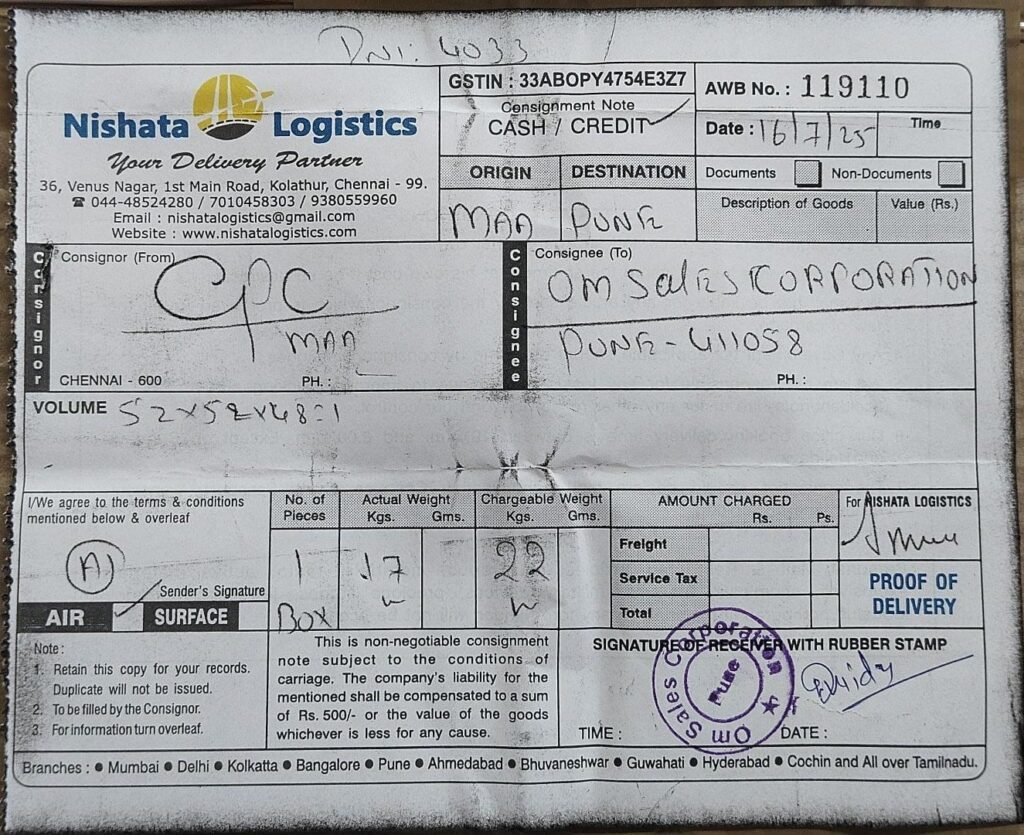 DNI: 4033
Nishata Logistics
Your Delivery Partner
36, Venus Nagar, 1st Main Road, Kolathur, Chennai - 99.
☎ 044-48524280 / 7010458303 / 9380559960
Email : nishatalogistics@gmail.com
Website : www.nishatalogistics.com
GSTIN : 33ABOPY4754E3Z7
Consignment Note
CASH / CREDIT ✓
AWB No. : 119110
Date : 16/7/25
Time
ORIGIN DESTINATION
MAA PUNE
Documents Non-Documents
Description of Goods Value (Rs.)
Consignor
Consignor (From)
CPC
MAA
CHENNAI - 600 PH. :
Consignee
Consignee (To)
OM SALES CORPORATION
PUNE - 411058
PH. :
VOLUME 52x52x48=1
I/We agree to the terms & conditions
mentioned below & overleaf
Sender's Signature
AIR ✓ SURFACE
No. of Pieces
1
BOX
Actual Weight
Kgs. Gms.
17
Chargeable Weight
Kgs. Gms.
22
AMOUNT CHARGED
Rs. Ps.
Freight
Service Tax
Total
For NISHATA LOGISTICS
PROOF OF
DELIVERY
Note :
1. Retain this copy for your records.
Duplicate will not be issued.
2. To be filled by the Consignor.
3. For information turn overleaf.
This is non-negotiable consignment
note subject to the conditions of
carriage. The company's liability for the
mentioned shall be compensated to a sum
of Rs. 500/- or the value of the goods
whichever is less for any cause.
SIGNATURE OF RECEIVER WITH RUBBER STAMP
Om Sales Corporation
Pune
TIME : DATE :
Branches : ● Mumbai ● Delhi ● Kolkatta ● Bangalore ● Pune ● Ahmedabad ● Bhuvaneshwar ● Guwahati ● Hyderabad ● Cochin and All over Tamilnadu.